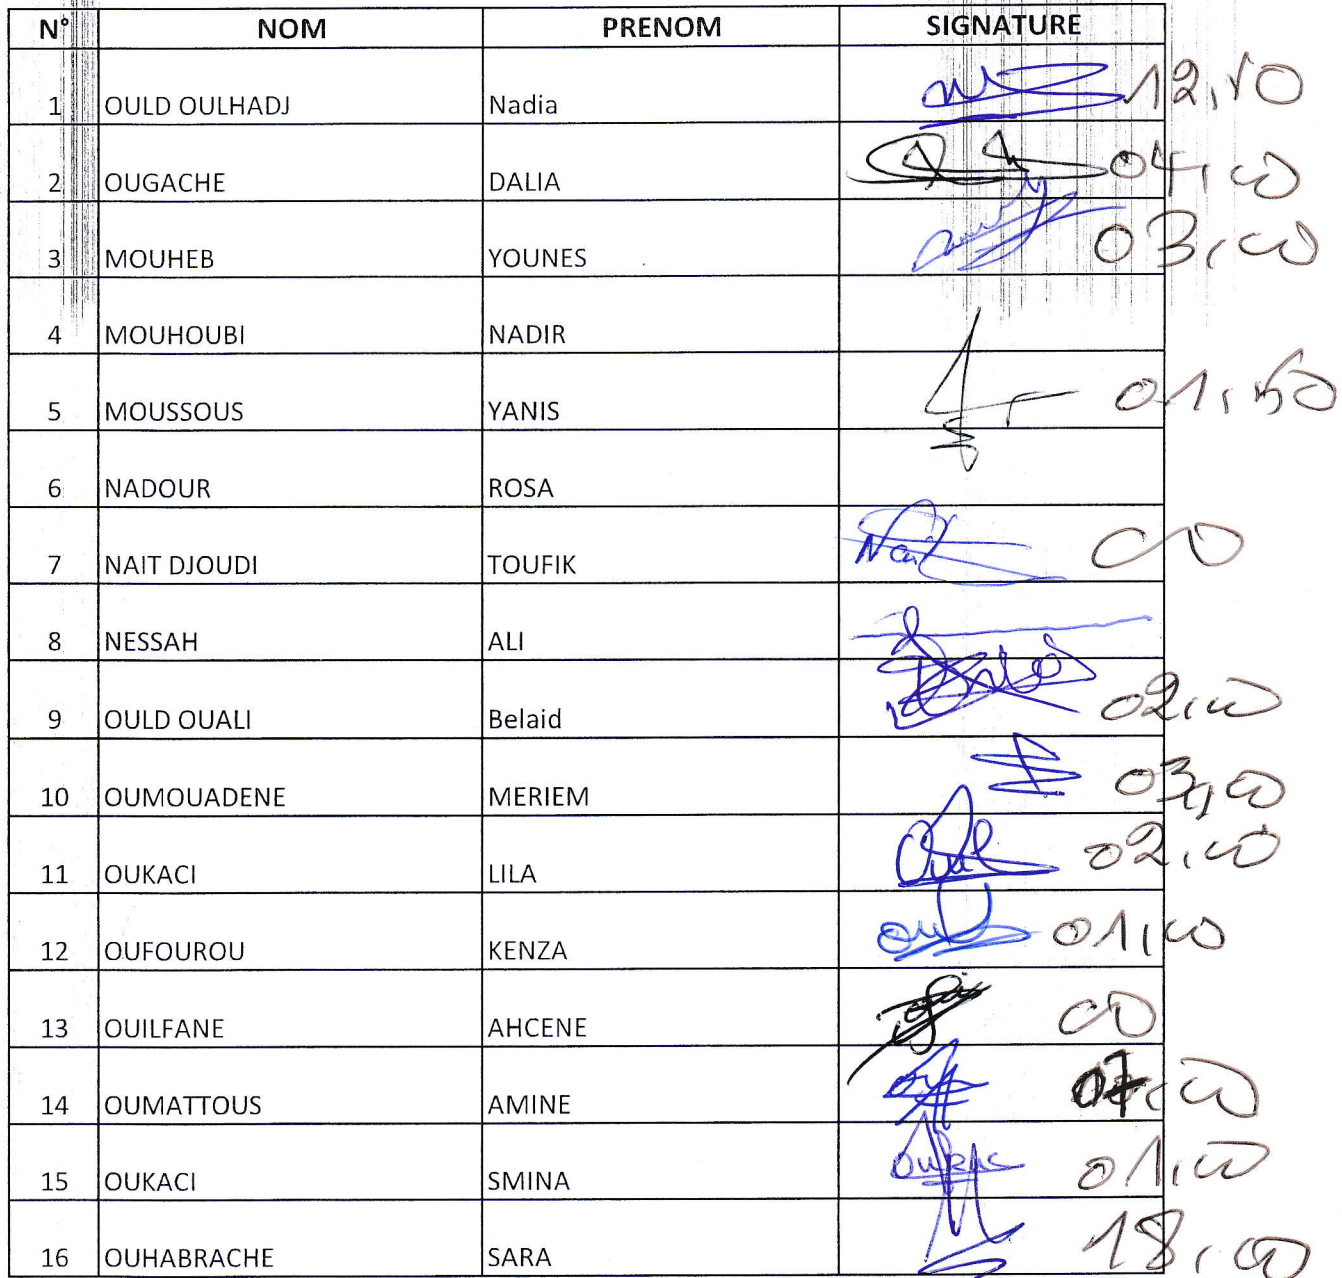 N° NOM PRENOM SIGNATURE
1 OULD OULHADJ Nadia 12,50
2 OUGACHE DALIA 04,00
3 MOUHEB YOUNES 03,00
4 MOUHOUBI NADIR
5 MOUSSOUS YANIS 01,50
6 NADOUR ROSA
7 NAIT DJOUDI TOUFIK 00
8 NESSAH ALI
9 OULD OUALI Belaid 02,00
10 OUMOUADENE MERIEM 03,00
11 OUKACI LILA 02,00
12 OUFOUROU KENZA 01,00
13 OUILFANE AHCENE 00
14 OUMATTOUS AMINE 07,00
15 OUKACI SMINA 01,00
16 OUHABRACHE SARA 18,00